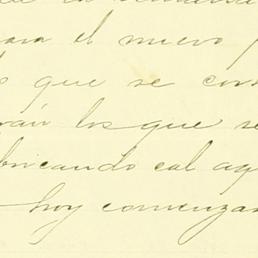 para el nuevo
que se con
rán los que se
bricando cal aq
hoy comenzar